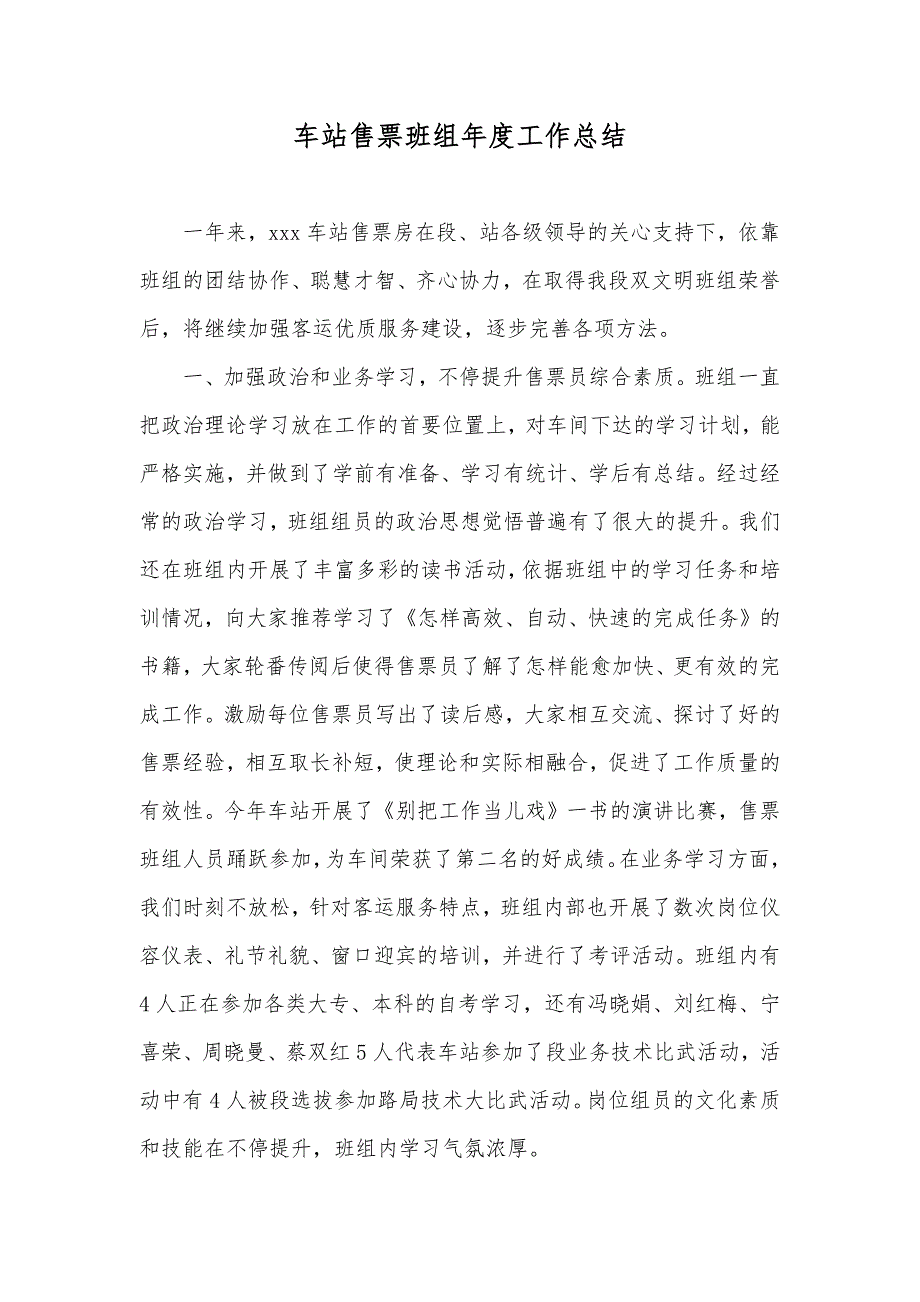 车站售票班组年度工作总结
一年来，xxx 车站售票房在段、站各级领导的关心支持下，依靠
班组的团结协作、聪慧才智、齐心协力，在取得我段双文明班组荣誉
后，将继续加强客运优质服务建设，逐步完善各项方法。
一、加强政治和业务学习，不停提升售票员综合素质。班组一直
把政治理论学习放在工作的首要位置上，对车间下达的学习计划，能
严格实施，并做到了学前有准备、学习有统计、学后有总结。经过经
常的政治学习，班组组员的政治思想觉悟普遍有了很大的提升。我们
还在班组内开展了丰富多彩的读书活动，依据班组中的学习任务和培
训情况，向大家推荐学习了《怎样高效、自动、快速的完成任务》的
书籍，大家轮番传阅后使得售票员了解了怎样能愈加快、更有效的完
成工作。激励每位售票员写出了读后感，大家相互交流、探讨了好的
售票经验，相互取长补短，使理论和实际相融合，促进了工作质量的
有效性。今年车站开展了《别把工作当儿戏》一书的演讲比赛，售票
班组人员踊跃参加，为车间荣获了第二名的好成绩。在业务学习方面，
我们时刻不放松，针对客运服务特点，班组内部也开展了数次岗位仪
容仪表、礼节礼貌、窗口迎宾的培训，并进行了考评活动。班组内有
4 人正在参加各类大专、本科的自考学习，还有冯晓娟、刘红梅、宁
喜荣、周晓曼、蔡双红 5 人代表车站参加了段业务技术比武活动，活
动中有 4 人被段选拔参加路局技术大比武活动。岗位组员的文化素质
和技能在不停提升，班组内学习气氛浓厚。